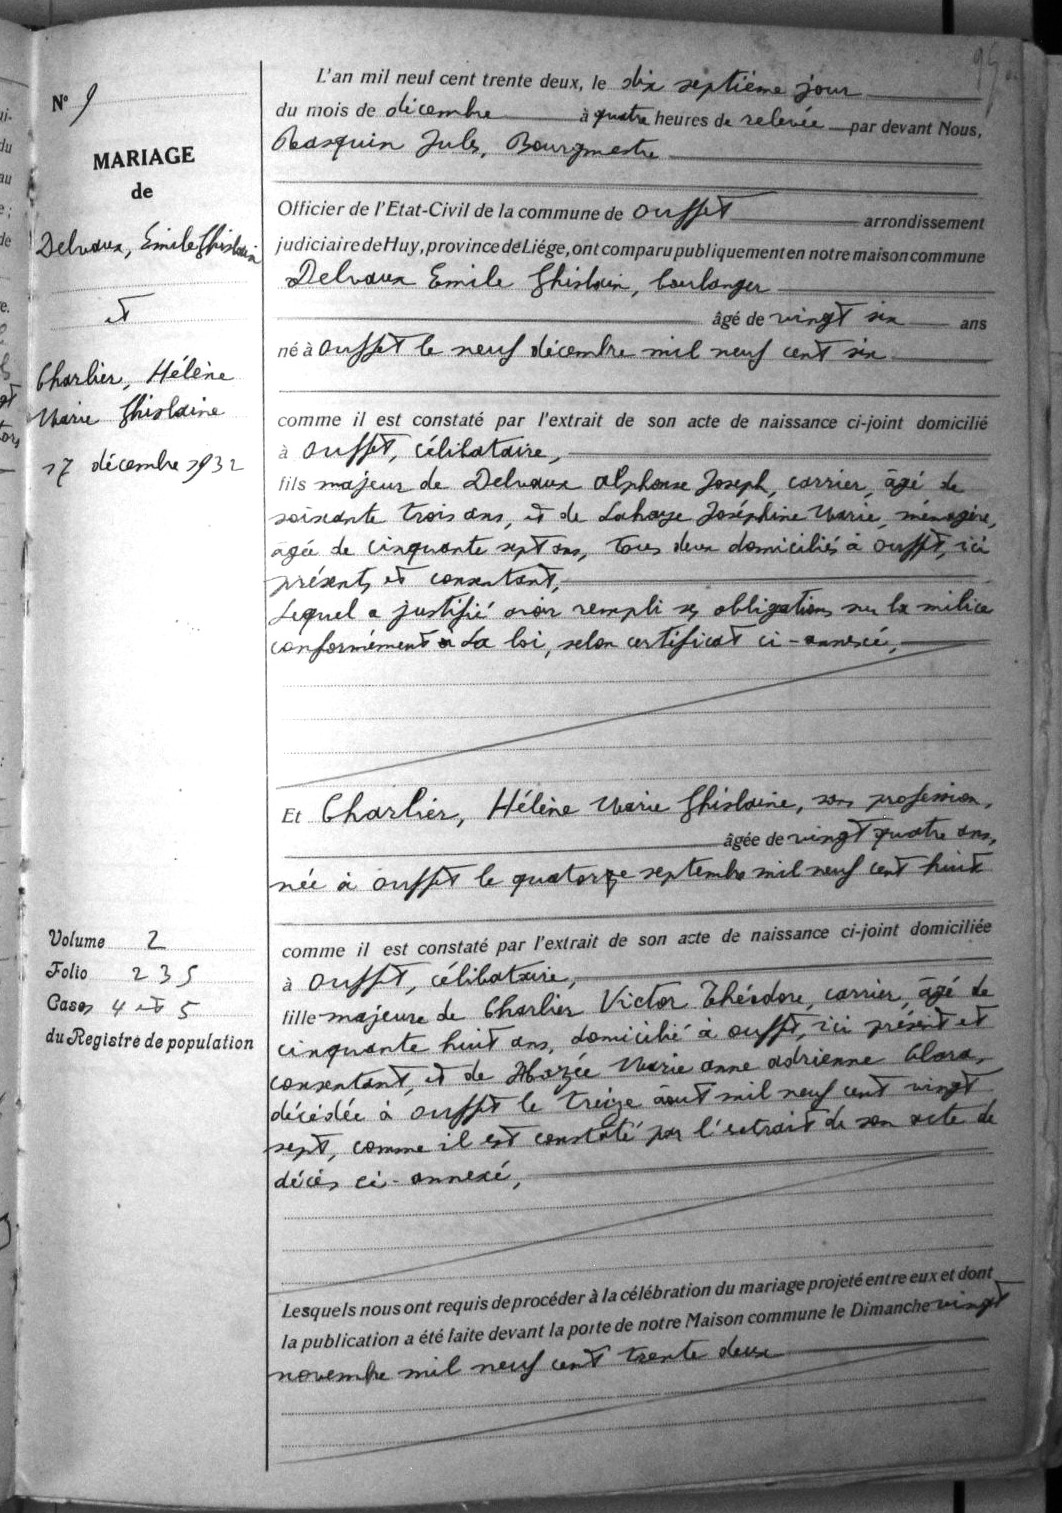 95
N° 9
MARIAGE
de
Delvaux, Emile Ghislain
et
Charlier, Hélène
Marie Ghislaine
17 décembre 1932
Volume 2
Folio 235
Cases 4 et 5
du Registre de population
L'an mil neuf cent trente deux, le dix septième jour
du mois de décembre à quatre heures de relevée par devant Nous,
Rasquin Jules, Bourgmestre
Officier de l'Etat-Civil de la commune de Ouffet arrondissement
judiciaire de Huy, province de Liége, ont comparu publiquement en notre maison commune
Delvaux Emile Ghislain, boulanger
âgé de vingt six ans
né à Ouffet le neuf décembre mil neuf cent six
comme il est constaté par l'extrait de son acte de naissance ci-joint domicilié
à Ouffet, célibataire,
fils majeur de Delvaux Alphonse Joseph, carrier, âgé de
soixante trois ans, et de Lahaye Joséphine Marie, ménagère,
âgée de cinquante sept ans, tous deux domiciliés à Ouffet, ici
présents et consentant,
Lequel a justifié avoir rempli ses obligations sur la milice
conformément à la loi, selon certificat ci-annexé,
Et Charlier, Hélène Marie Ghislaine, sans profession,
âgée de vingt quatre ans,
née à Ouffet le quatorze septembre mil neuf cent huit
comme il est constaté par l'extrait de son acte de naissance ci-joint domiciliée
à Ouffet, célibataire,
fille majeure de Charlier Victor Théodore, carrier, âgé de
cinquante huit ans, domicilié à Ouffet, ici présent et
consentant, et de Hazée Marie Anne Adrienne Clara,
décédée à Ouffet le treize août mil neuf cent vingt
sept, comme il est constaté par l'extrait de son acte de
décès ci-annexé,
Lesquels nous ont requis de procéder à la célébration du mariage projeté entre eux et dont
la publication a été faite devant la porte de notre Maison commune le Dimanche vingt
novembre mil neuf cent trente deux